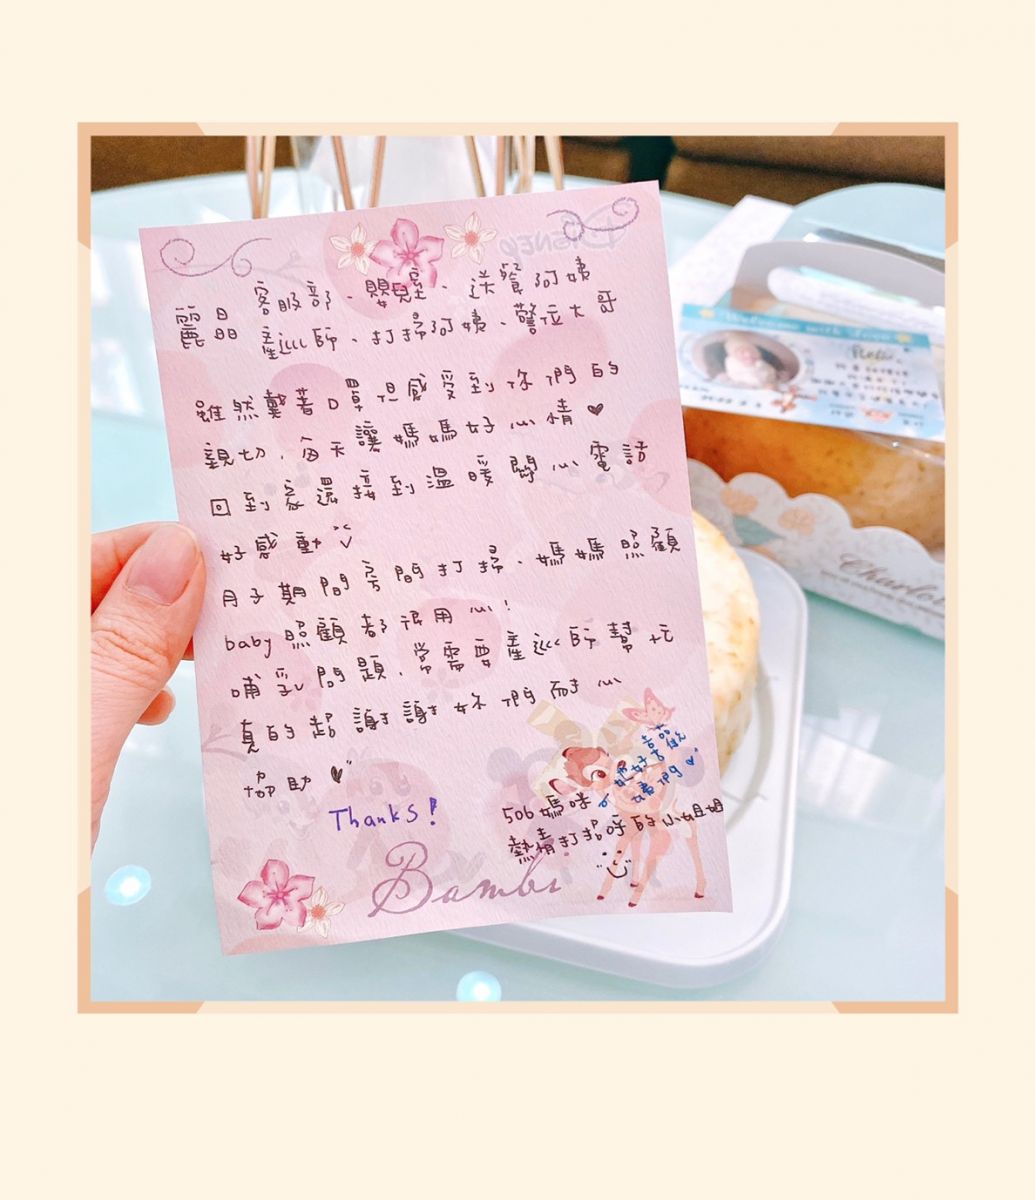 DISNEY
麗晶 客服部、嬰兒室、送餐阿姨
產巡師、打掃阿姨、警衛大哥
雖然戴著口罩但感受到你們的
親切,每天讓媽媽好心情♥
回到家還接到溫暖關心電話
好感動
月子期間房間打掃、媽媽照顧
baby照顧都很用心!
哺乳問題,常需要產巡師幫忙
真的超謝謝妳們耐心
協助♥
Thanks!
506媽咪
熱情打招呼的小姐姐
Bambi
Welcome with love
Charlotte